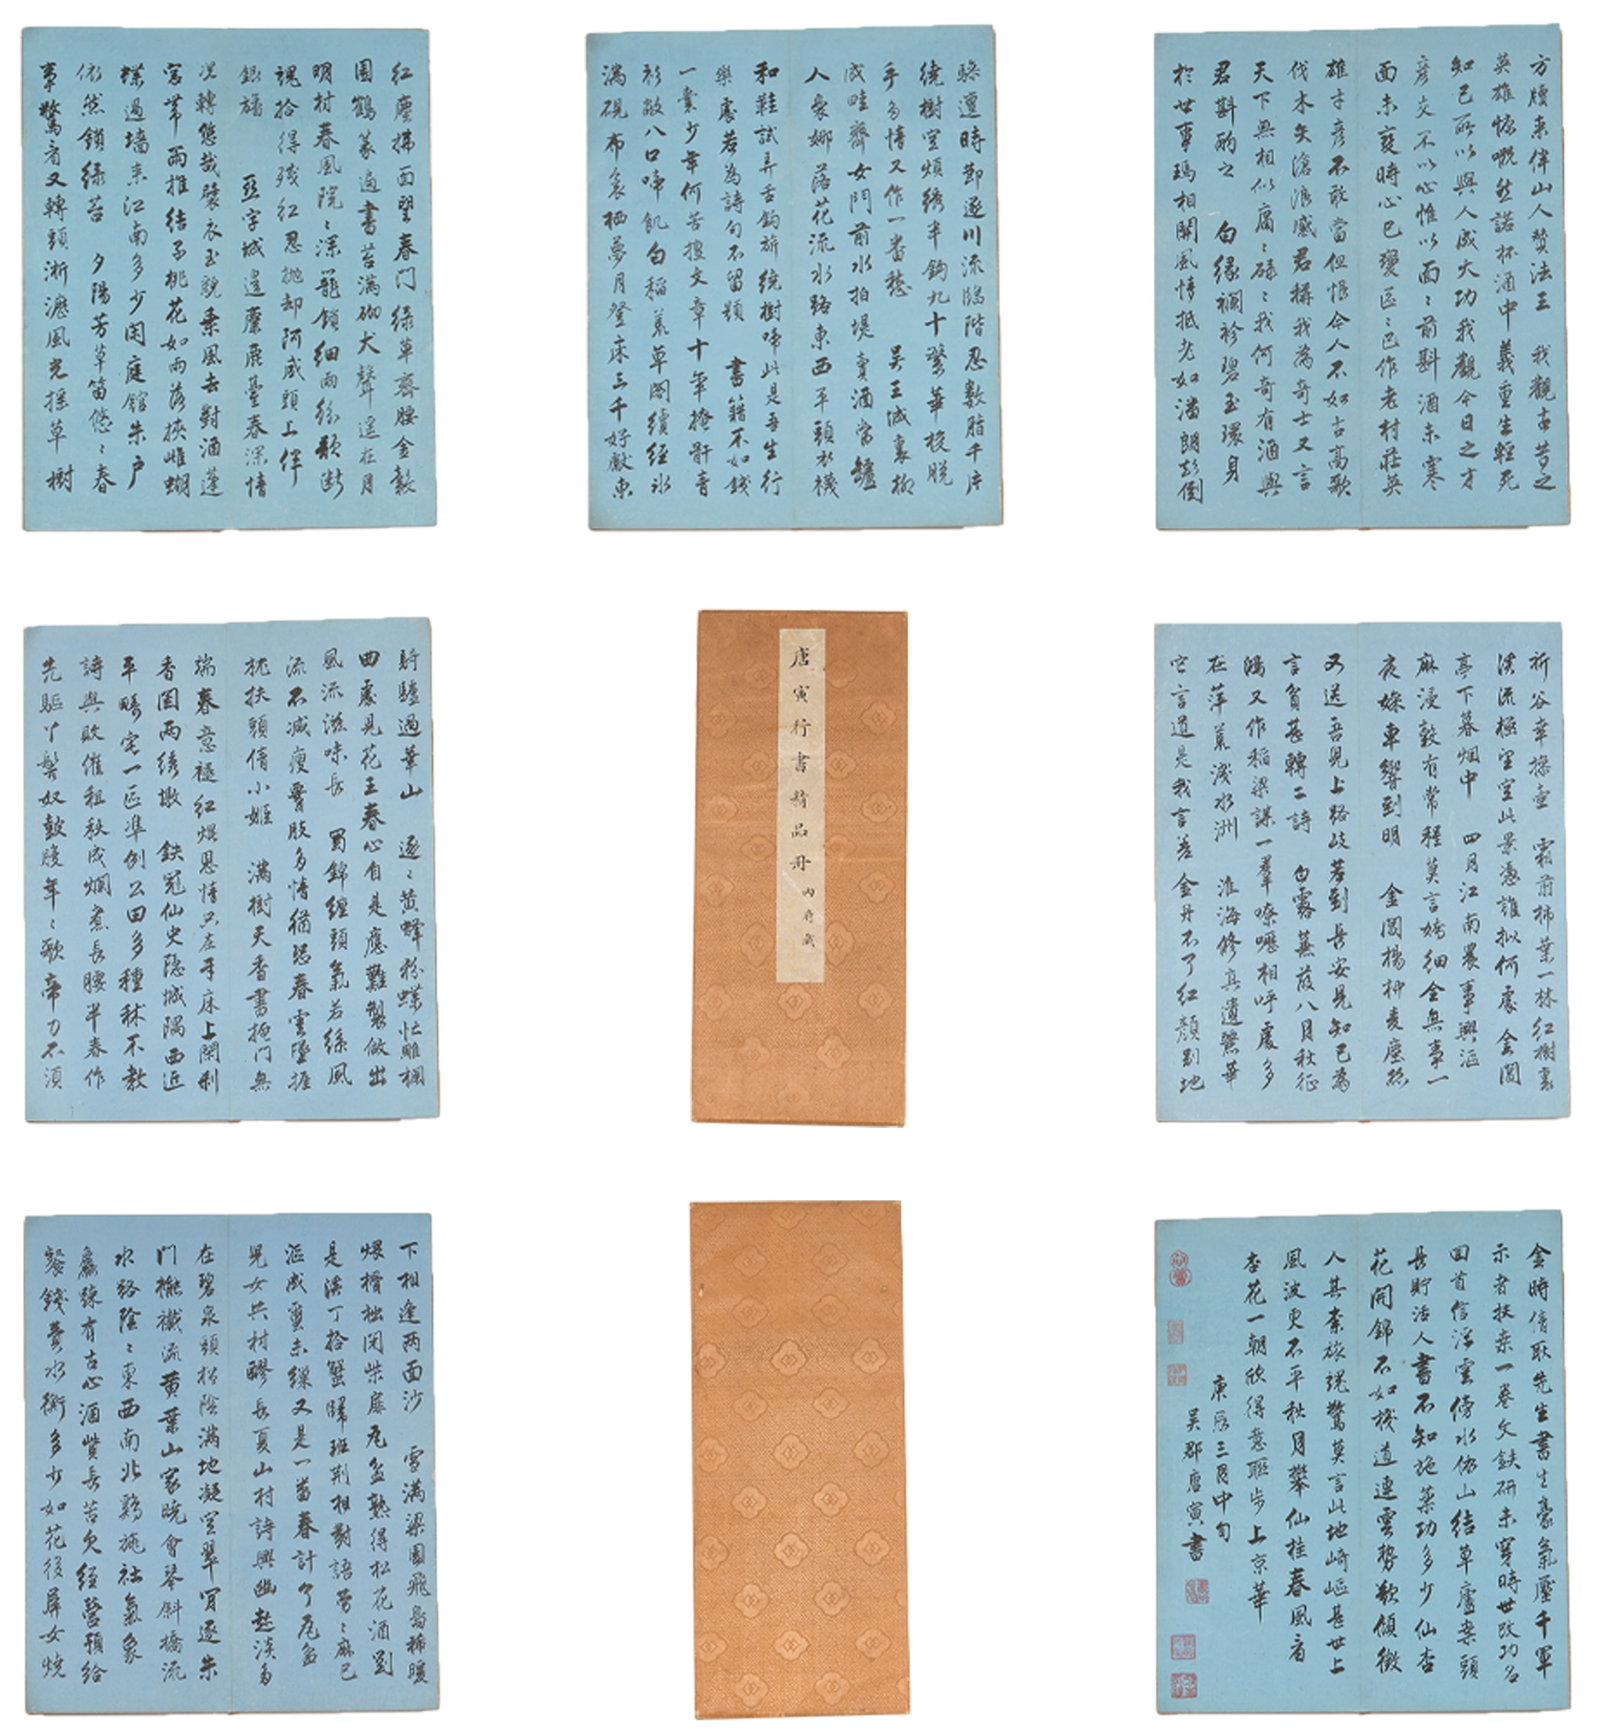 紅塵拂面望春門綠草齊腰金穀
園鶴篆遍書苔滿砌犬聲遥在月
明村春風院々深籠鎖細雨紛歌斷
魂拾得殘紅忍抛却阿咸頭上伴
銀旛 亞字城邊麋鹿臺春深情
況轉悠哉襞衣玉貌乘風去對酒蓬
窓 雨推結子桃花如雨落挾雌蝴
蝶過墻来江南多少閑庭館朱户
依然鎖綠苔 夕陽芳草笛悠々春
事驚看又轉頭淅瀝風光搖草樹
邅時節逐川流臨階忍數脂千片
繞樹空煩綉半鈎九十鶯華梭脱
手多情又作一番愁 吴王城裏柳
成畦齊女門前水拍堤賣酒當壚
人裊娜落花流水路東西平頭衣襪
和鞋試弄舌鈎辀繞樹啼此是吾生行
樂處若為詩句不留題 書籍不如錢
一囊少年何苦擅文章十年掩骭青
衫敝八口啼飢白稻荒草閣續經冰
滿硯布衾栖夢月登床三千好獻東
方腰来伴山人贊法王 我觀古昔之
英雄慷慨然諾杯酒中義重生輕死
知己所以與人成大功我觀今日之才
彦交不以心惟以面々前斟酒未寒
面未變時心已變區々已作老村莊英
雄才彦不敢當但恨今人不如古高歌
伐木矢滄浪感君稱我為奇士又言
天下無相似庸々碌々我何奇有酒與
君斟酌之 白緣襴衫碧玉環身
於世事瑪相關風情抵老如潘朗彭倒
騎驢過華山 逐々黄蜂粉蝶忙雕欄
曲處見花王春心自是應難製做出
風流滋味長 蜀錦纏頭氣若絲風
流不減瘦腰肢多情猶恐春雲墜握
扶頭倩小姬 滿樹天香書掩門無
端春意褪紅煨恩情只在手床上閑刺
香囡两綉墩 鈇冠仙史隱城隅西近
平疇宅一區準例公田多種秫不教
詩興敗催租秋成爛煮長腰半春作
先驅丫髻奴鼓腹年々歌帝力不須
唐寅行書精品册 内府藏
祈谷幸操壶 霜前柿葉一林紅樹裏
溪流極望空此景憑誰拟何處金閶
亭下暮烟中 四月江南農事興漚
麻浸穀有常程莫言嬌細全無事一
夜繰車響到明 金閶楊柳麦塵
又送吾兄上路歧若到長安見知己為
言貧甚轉二詩 白露蒹葭八月秋征
鴻又作稻梁謀一羣嘹嚦相呼處多
在萍蓑淺水洲 淮海修真遺麗華
它言道是我言差金丹不了紅顏别地
下相逢两面沙 雪滿梁園飛鳥稀暖
煨榾柮閉柴扉瓦盆熟得松花酒剛
是溪丁拾蟹歸班荆相對語勞々麻已
漚成繭未繰又是一番春計了瓦盆
兒女共村醪長夏山村詩興幽趁淡多
在碧泉頭松陰滿地凝空翠肎逐朱
門褦襶流黄葉山家晓會琴斜橋流
水路陰々東西南北鷄豚社氣象
麤疎有古心酒貲長苦欠經營預給
餐錢費水衡多少如花後屏女燒
金時倩耿先生書生豪氣壓千軍
示者扶桑一卷文鉄研未穿時世改功名
回首信浮雲傍水依山結草廬案頭
長貯活人書不知施藥功多少仙杏
花開錦不如棧道連雲勢欲傾徵
人其奈旅魂驚莫言此地崎嶇甚世上
風波更不平秋月攀仙桂春風看
杏花一朝欣得意聯步上京華
庚辰三月中旬
吴郡唐寅書